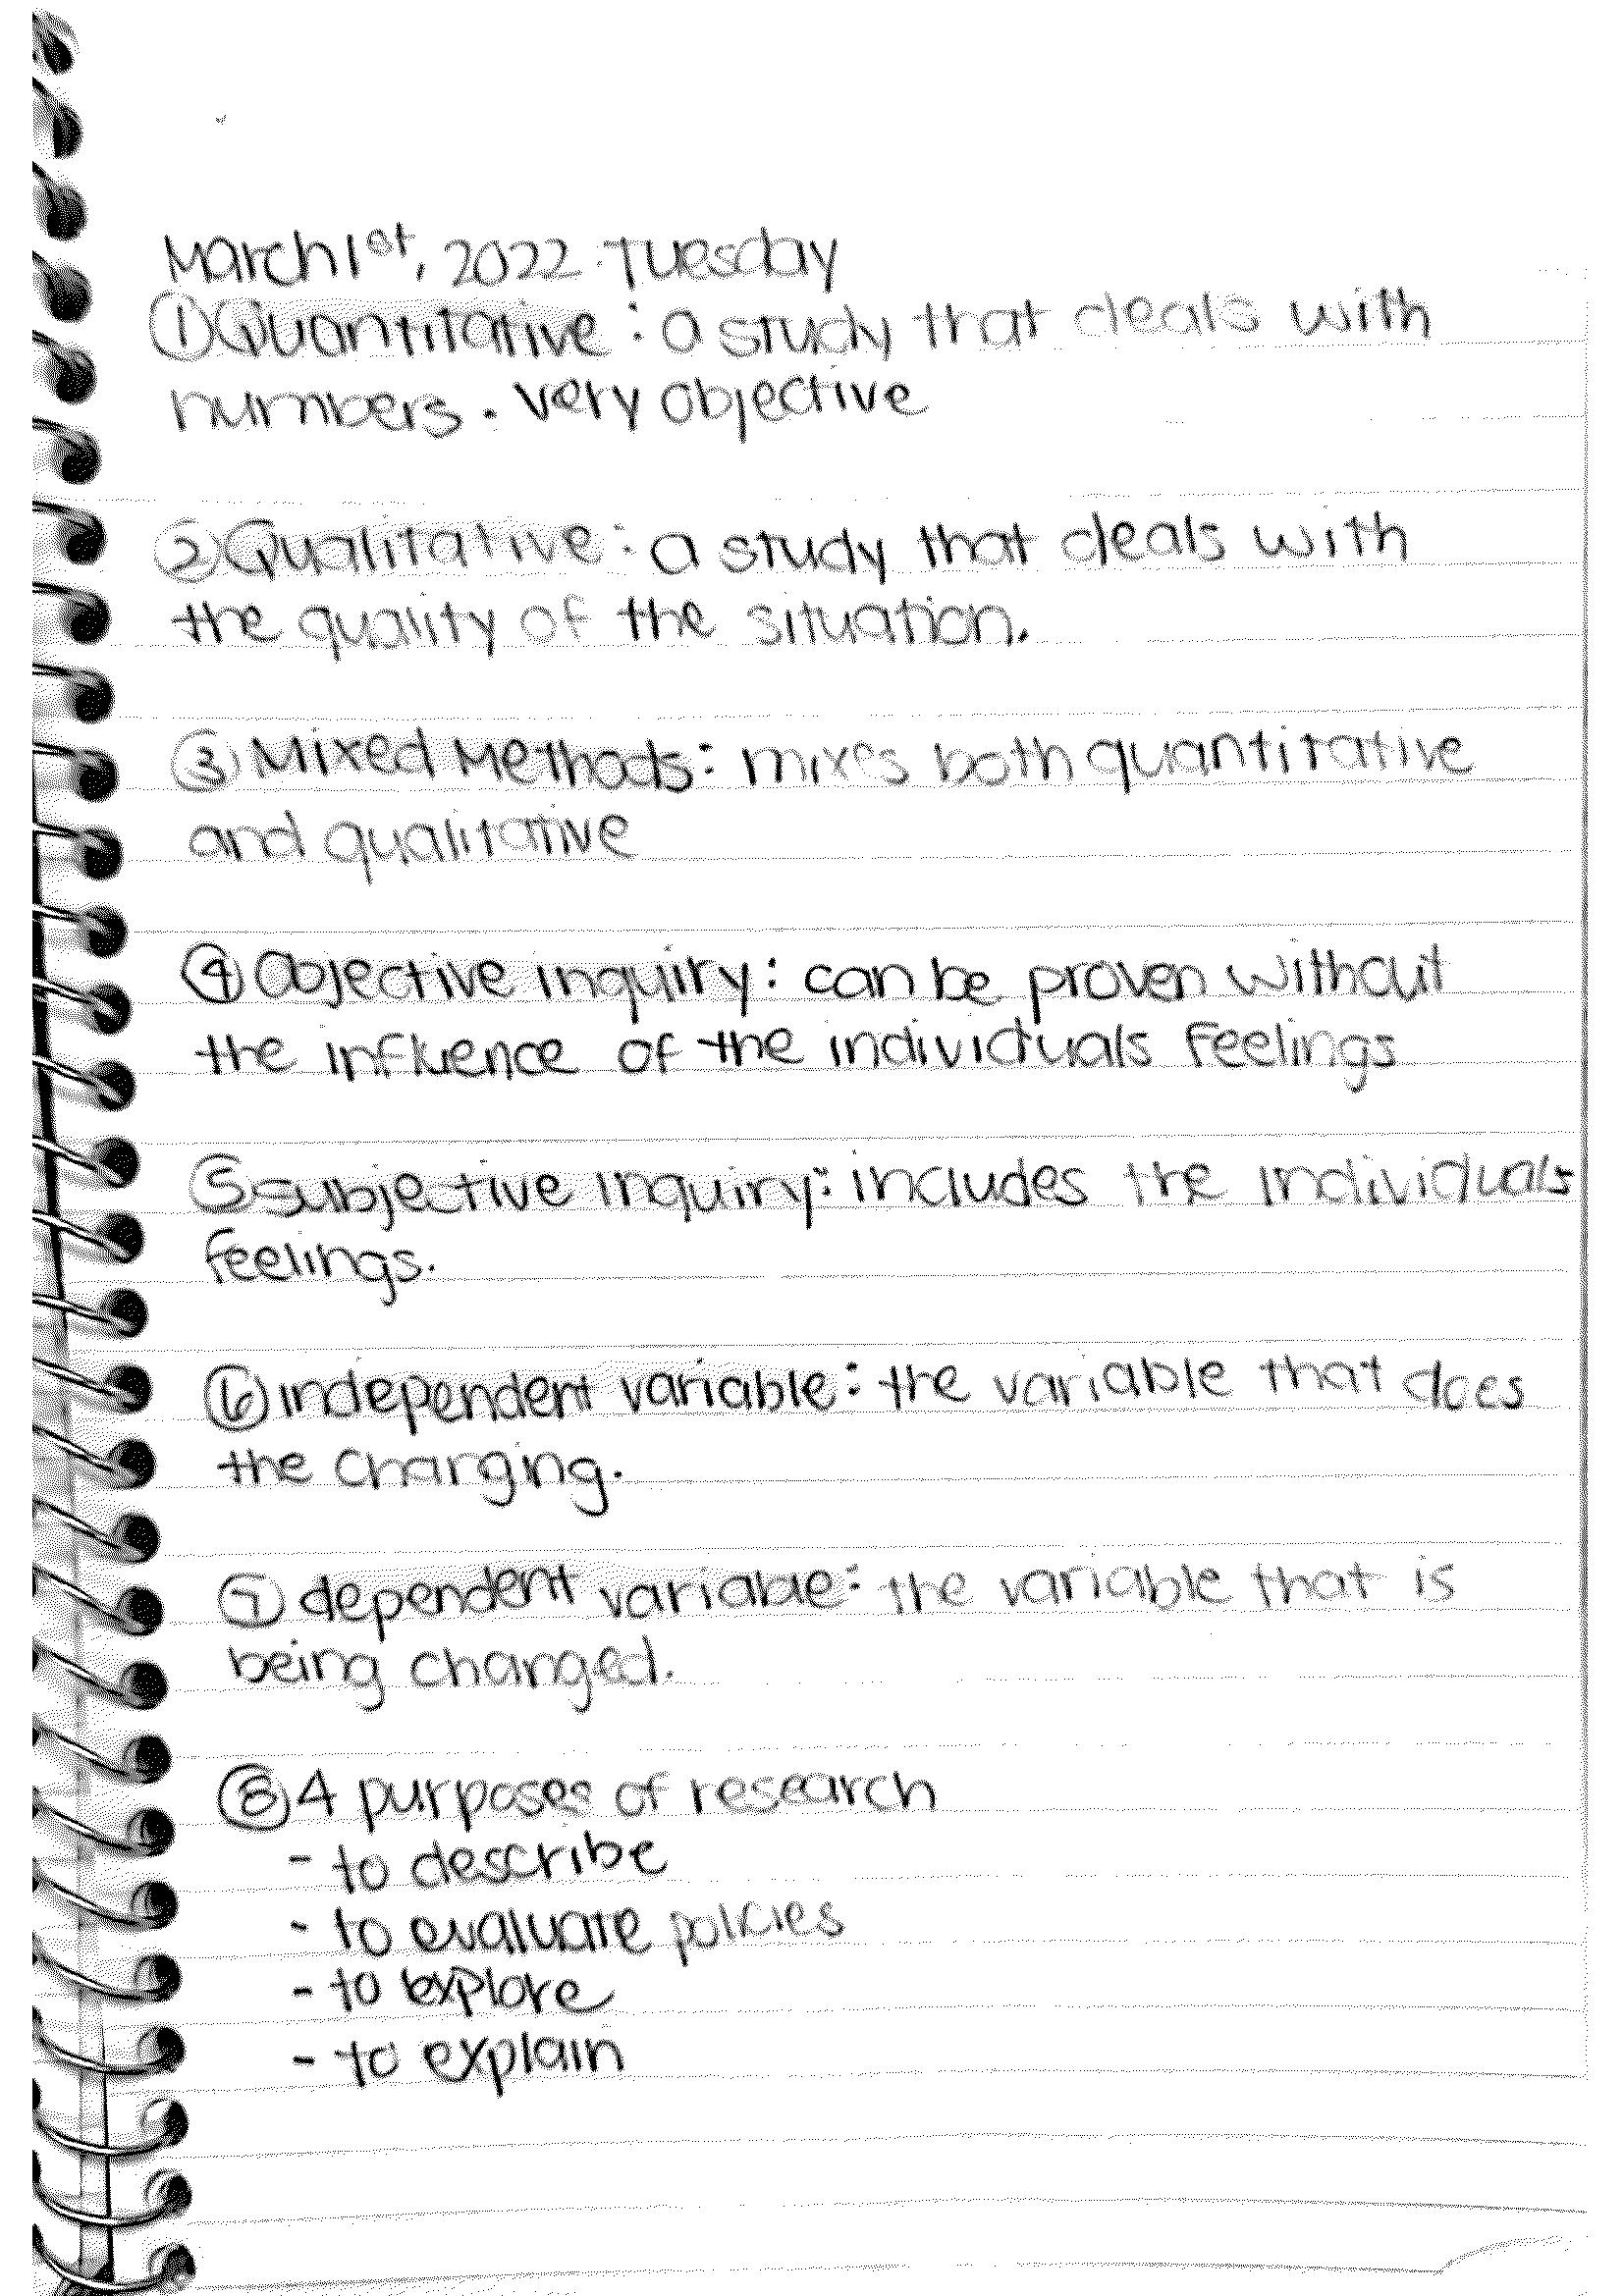 March 1st, 2022 Tuesday
① Quantitative : a study that deals with
numbers. very objective
② Qualitative : a study that deals with
the quality of the situation.
③ Mixed Methods : mixes both quantitative
and qualitative
④ Objective inquiry : can be proven without
the influence of the individuals feelings
⑤ subjective inquiry : includes the individuals
feelings.
⑥ independent variable : the variable that does
the changing.
⑦ dependent variable : the variable that is
being changed.
⑧ 4 purposes of research
- to describe
- to evaluate policies
- to explore
- to explain